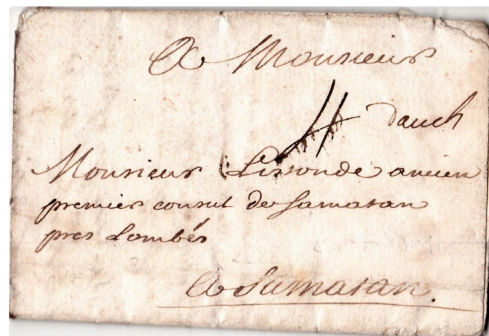 A Monsieur
4 dauch
Monsieur Lissonde ancien
premier consul de Samatan
pres Lombés
A Samatan.